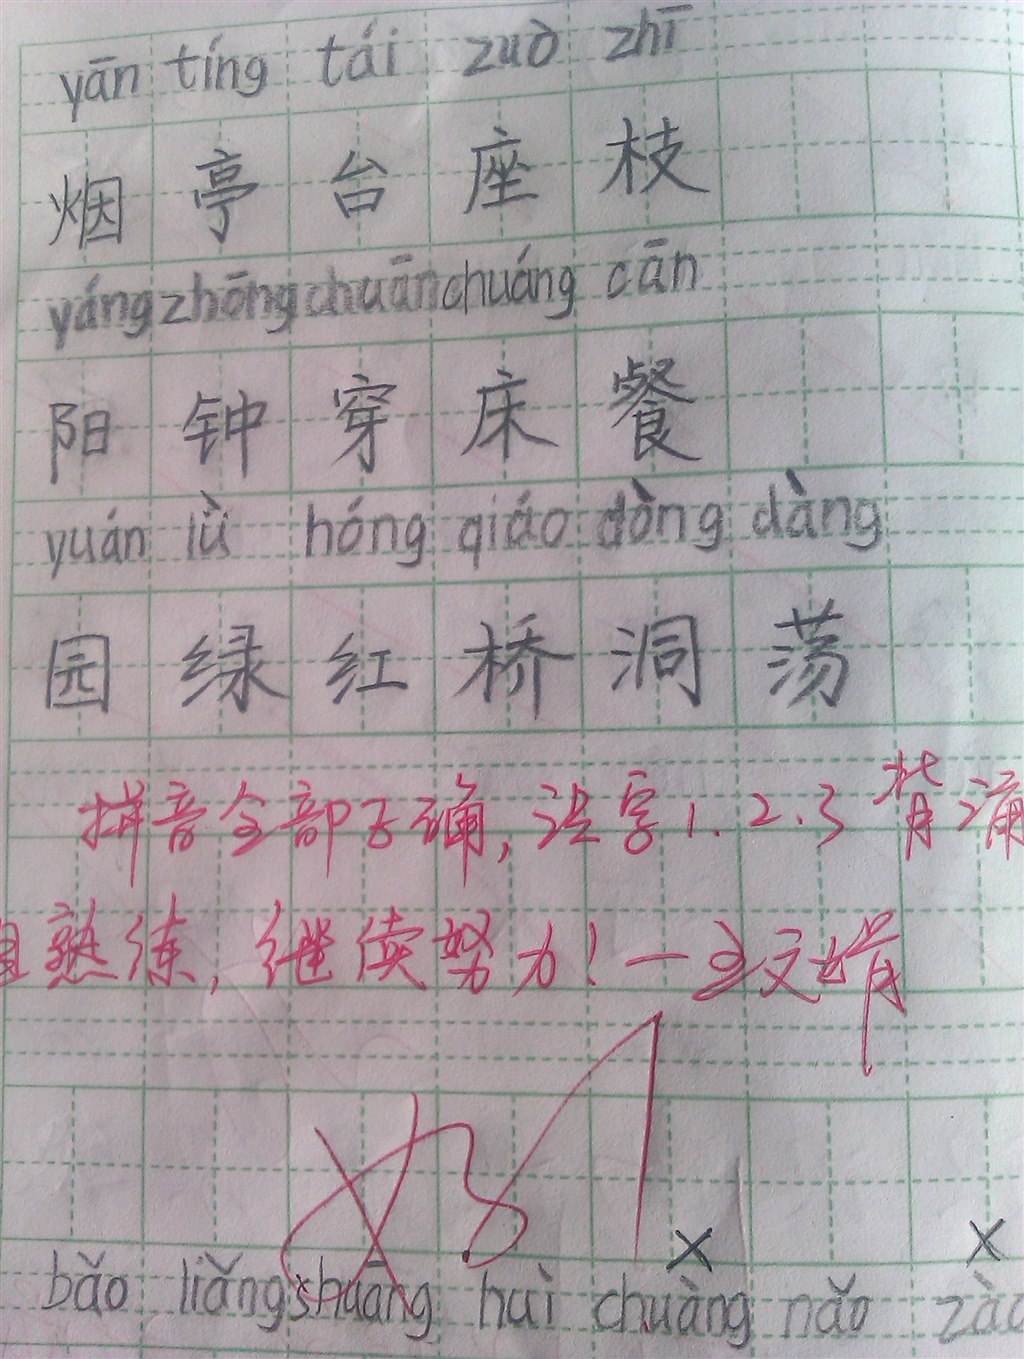 yān tíng tái zuò zhī
烟 亭 台 座 枝
yáng zhōng chuān chuáng cān
阳 钟 穿 床 餐
yuán lǜ hóng qiáo dòng dàng
园 绿 红 桥 洞 荡
拼音全部正确,识字1.2.3背诵
熟练,继续努力!一
好
× ×
bǎo liǎng shuāng huì chuàng nǎo